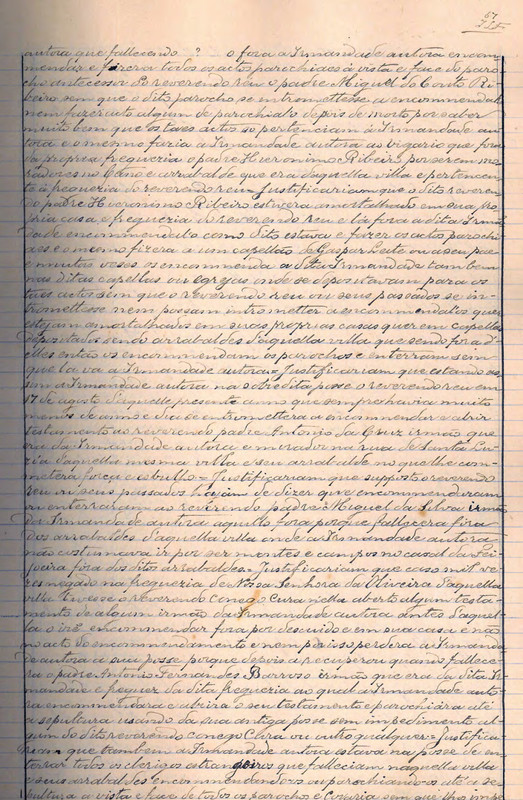 67
autora que fallecendo ? o fora a Irmandade autora encom
mendar e fizera todos os actos parochiaes à vista e face do paro
cho antecessor do reverendo reu o padre Miguel do Couto Ri
beiro sem que o dito parocho se intromettesse a encommendal-o
nem fazer acto algum de parochial-o depois de morto por saber
muito bem que os taes actos só pertenciam à Irmandade au
tora e o mesmo faria a Irmandade autora ao vigario que fora
da propria freguezia o padre Hieronimo Ribeiro por serem mo
radores no Cano e arrabalde que era daquella villa e pertencen
te à freguezia do reverendo reu = Justificariam que o dito reveren
do padre Hieronimo Ribeiro estivera amortalhado em sua pro
pria casa e freguezia do reverendo reu e lá fora a dita Irman
dade encommendal-o como dito estava e fazer os actos parochi
aes e o mesmo fizera a um capellão de Gaspar Leite ou a seu pae
e muitas vezes os encommenda a dita Irmandade tambem
nas ditas capellas ou egrejas onde se depositavam para os
taes actos sem que o reverendo reu ou seus passados se in
tromettesse nem possam intrometter a encommendal-os quer
estejam amortalhados em suas proprias casas quer em capellas
depositados sendo arrabaldes d'aquella villa que sendo fora d'
elles então os encommendam os parochos e enterram sem
que lá vá a Irmandade autora = Justificariam que estando as
sim a Irmandade autora na sobredita posse o reverendo reu em
17 de agosto d'aquelle presente anno que sempre havia muito
menos de anno e dia se entromettera a encommendar e abrir
testamento ao reverendo padre Antonio da Cruz irmão que
era da Irmandade autora e morador na rua de Santa Lu
zia d'aquella mesma villa e seu arrabalde no que lhe com
metera força e esbulho = Justificariam que supposto o reverendo
reu ou seus passados hajam de dizer que encommendaram
ou enterraram ao reverendo padre Miguel da Silva irmão
da Irmandade autora aquillo fora porque fallecera fora
dos arrabaldes d'aquella villa onde a Irmandade autora
não costumava ir por ser montes e campos no casal da
fora dos ditos arrabaldes = Justificariam que caso mil ve
zes negado na freguezia de Nossa Senhora da Oliveira d'aquella
villa tivesse o reverendo conego Cura n'ella aberto algum testa
mento de algum irmão da Irmandade autora antes d'aquel
la o ir encommendar fora por descuido e em sua casa e não
no acto de encommendamento e nem por isso perdera a Irmanda
de autora a sua posse porque depois a recuperou quando fallece
ra o padre Antonio Fernandes Barroso irmão que era da dita Ir
mandade e freguez da dita freguezia ao qual a Irmandade auto
ra encommendara e abrira o seu testamento e parochiára até
a sepultura usando da sua antiga posse sem impedimento al
gum do dito reverendo conego Cura ou outro qualquer = Justifica
riam que tambem a Irmandade autora estava na posse de en
terrar todos os clerigos estrangeiros que falleciam naquella villa
e seus arrabaldes encommendando-os ou parochiando-os até a se
pultura à vista e face de todos os parochos e Couraria sem que lhe impe